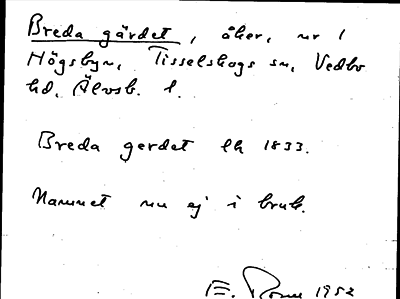 Breda gärdet, åker, nr 1
Högsbyn, Tisselskogs sn, Vedbo
hd, Älvsb. l.
Breda gerdet lh 1833.
Namnet nu ej i bruk.
E. 1952